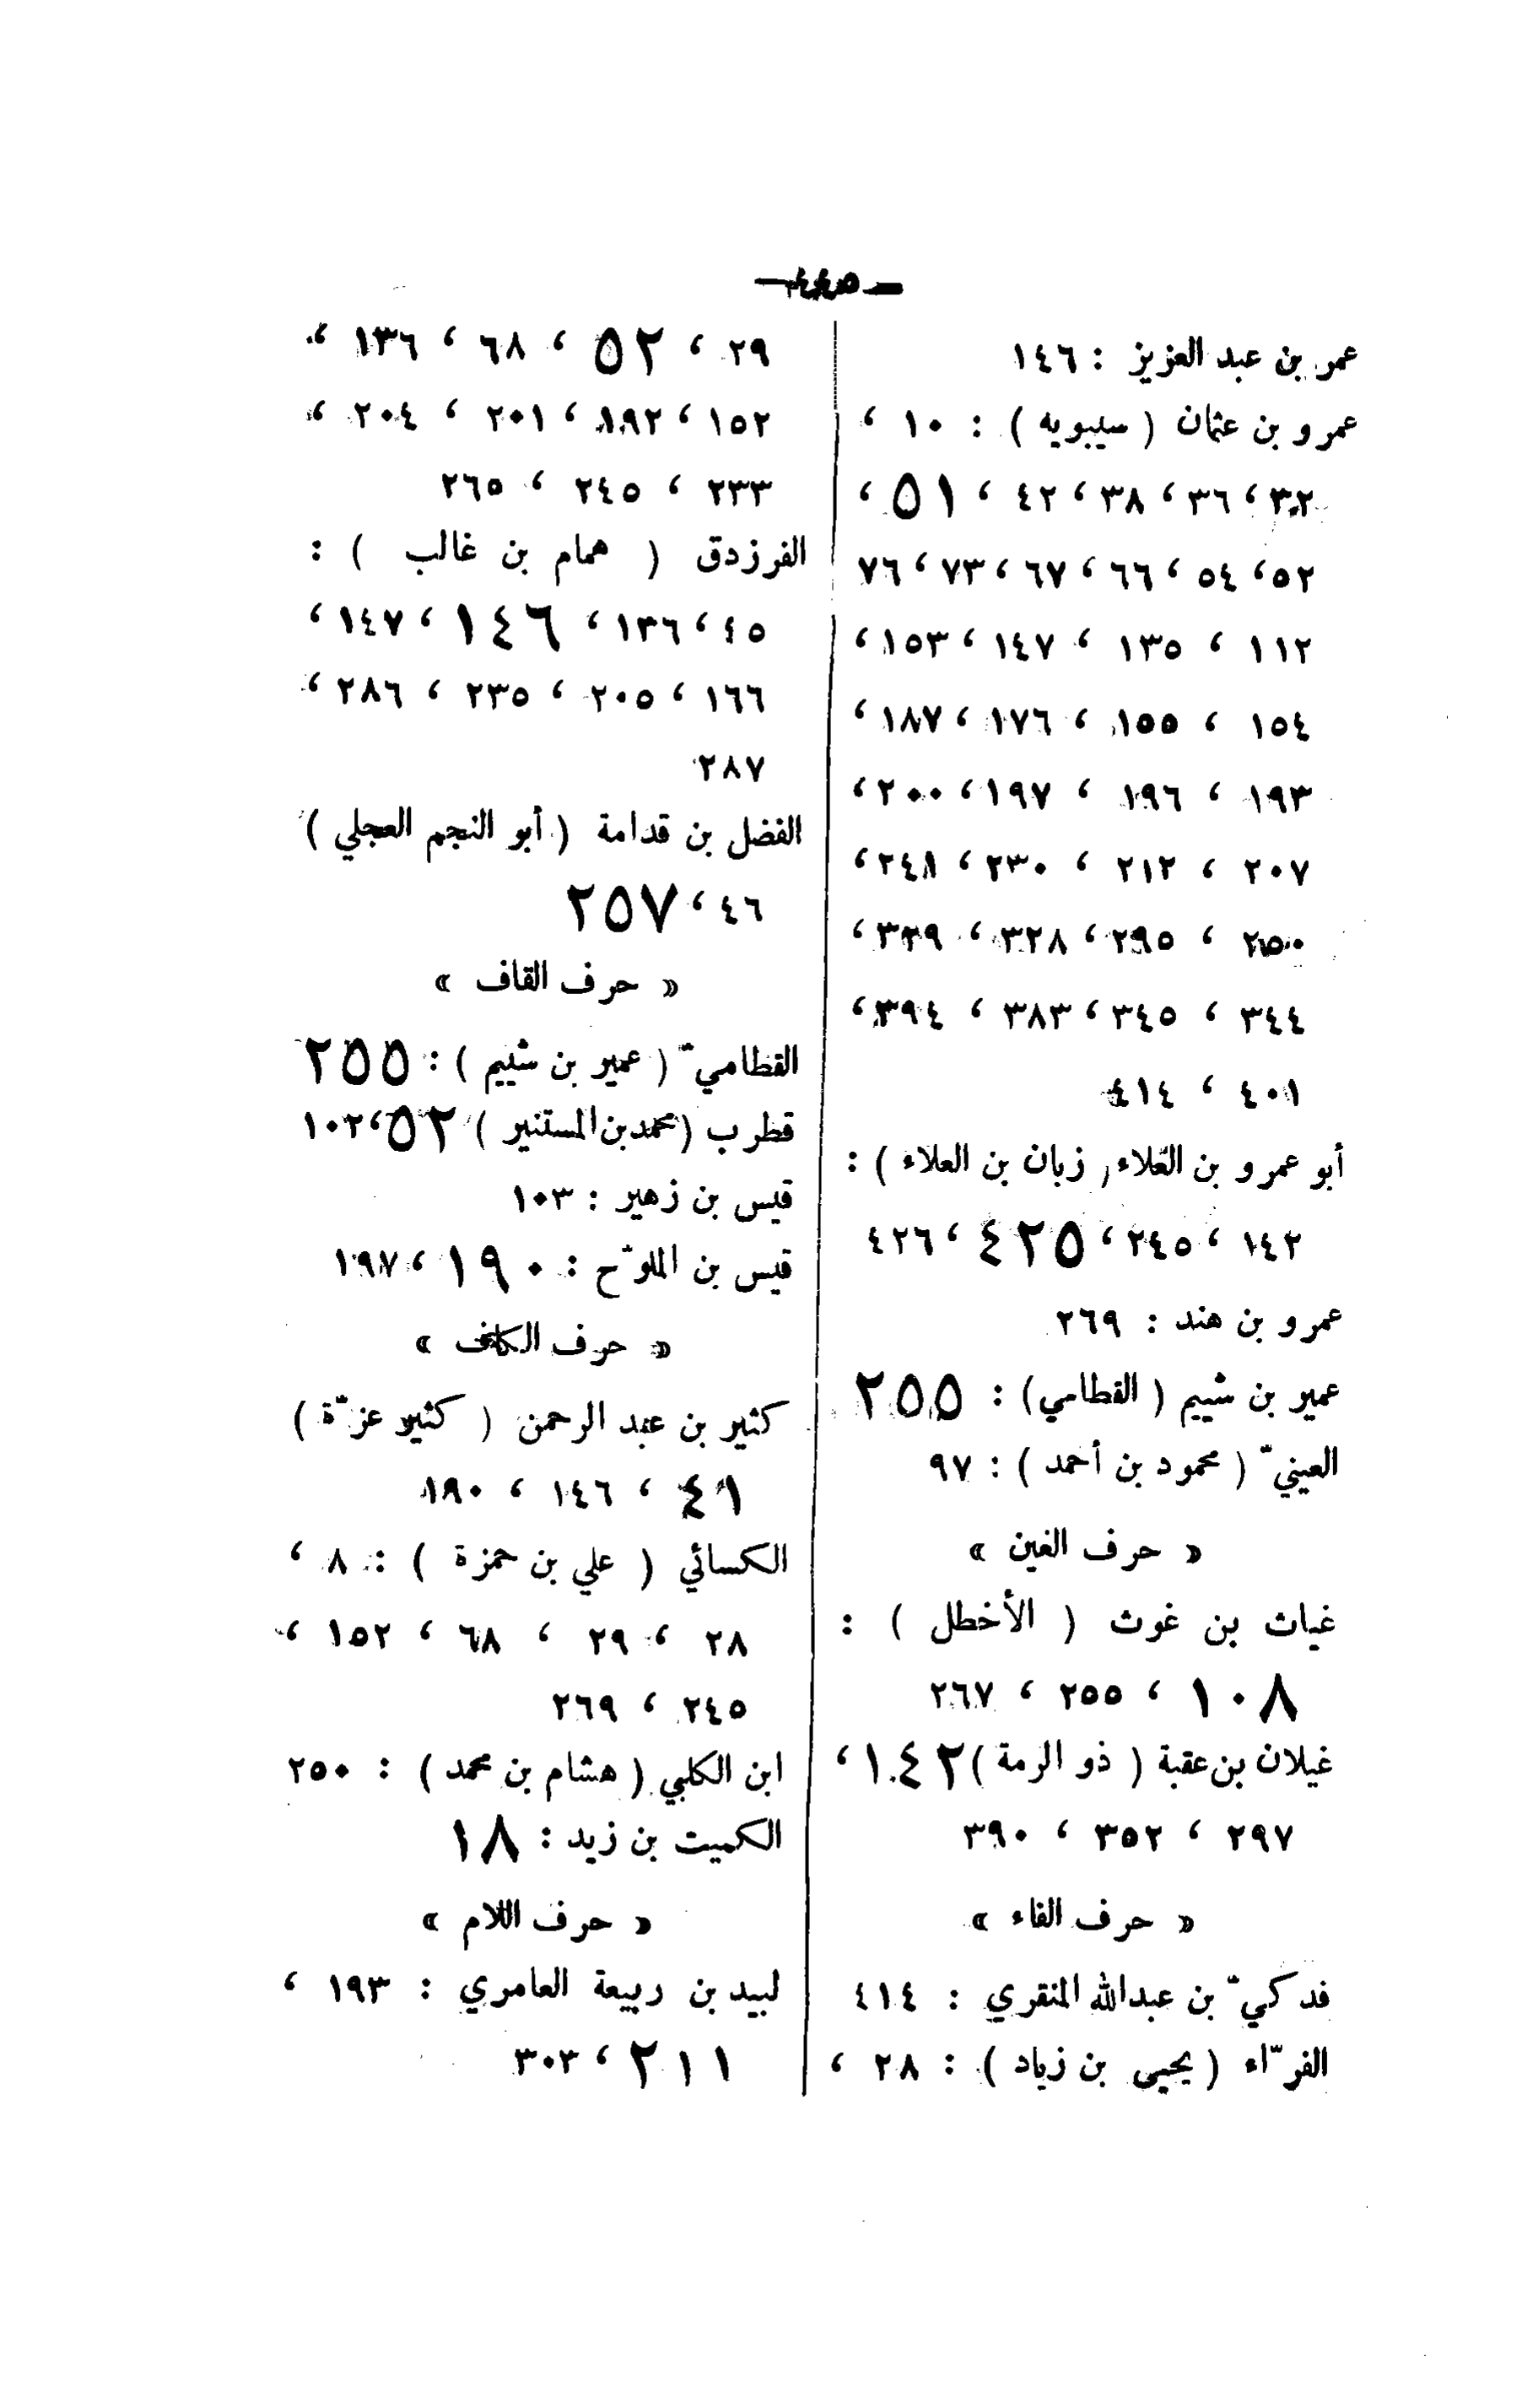 عمر بن عبد العزيز : ١٤٦
عمرو بن عثمان ( سيبويه ) : ١٠ ،
٣٢ ، ٣٦ ، ٣٨ ، ٤٢ ، ٥١ ،
٥٢ ، ٥٤ ، ٦٦ ، ٦٧ ، ٧٣ ، ٧٦
١١٢ ، ١٣٥ ، ١٤٧ ، ١٥٣ ،
١٥٤ ، ١٥٥ ، ١٧٦ ، ١٨٧ ،
١٩٣ ، ١٩٦ ، ١٩٧ ، ٢٠٠ ،
٢٠٧ ، ٢١٢ ، ٢٣٠ ، ٢٤٨ ،
٢٥٠ ، ٢٩٥ ، ٣٢٨ ، ٣٣٩ ،
٣٤٤ ، ٣٤٥ ، ٣٨٣ ، ٣٩٤ ،
٤٠١ ، ٤١٤
أبو عمرو بن العلاء ( زبان بن العلاء ) :
١٤٢ ، ٢٤٥ ، ٤٢٥ ، ٤٢٦
عمرو بن هند : ٢٦٩
عمير بن شييم ( القطامي ) : ٢٥٥
العينيّ ( محمود بن أحمد ) : ٩٧
« حرف الغين »
غياث بن غوث ( الأخطل ) :
١٠٨ ، ٢٥٥ ، ٢٦٧
غيلان بن عقبة ( ذو الرمة ) ١٤٢ ،
٢٩٧ ، ٣٥٢ ، ٣٩٠
« حرف الفاء »
فدكيّ بن عبدالله المنقري : ٤١٤
الفرّاء ( يحيى بن زياد ) : ٢٨ ،
٢٩ ، ٥٢ ، ٦٨ ، ١٣٦ ،
١٥٢ ، ١٩٢ ، ٢٠١ ، ٢٠٤ ،
٢٣٣ ، ٢٤٥ ، ٢٦٥
الفرزدق ( همام بن غالب ) :
٤٥ ، ١٣٦ ، ١٤٦ ، ١٤٧ ،
١٦٦ ، ٢٠٥ ، ٢٣٥ ، ٢٨٦ ،
٢٨٧
الفضل بن قدامة ( أبو النجم العجلي )
٤٦ ، ٢٥٧
« حرف القاف »
القطاميّ ( عمير بن شييم ) : ٢٥٥
قطرب ( محمد بن المستنير ) ٥٢ ، ١٠٢
قيس بن زهير : ١٠٣
قيس بن الملوّح : ١٩٠ ، ١٩٧
« حرف الكاف »
كثير بن عبد الرحمن ( كثير عزّة )
٤٩ ، ١٤٦ ، ١٩٠
الكسائي ( علي بن حمزة ) : ٨ ،
٢٨ ، ٢٩ ، ٦٨ ، ١٥٢ ،
٢٤٥ ، ٢٦٩
ابن الكلبي ( هشام بن محمد ) : ٢٥٠
الكميت بن زيد : ١٨
« حرف اللام »
لبيد بن ربيعة العامري : ١٩٣ ،
٢١١ ، ٣٠٣